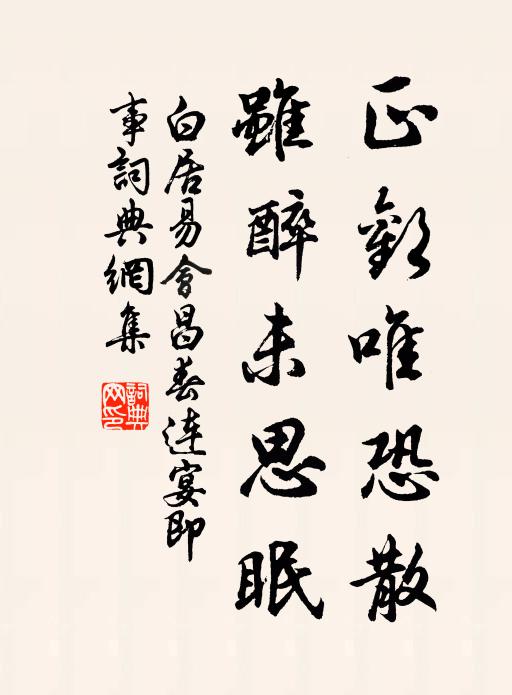 正歡唯恐散
雖醉未思眠
白居易會昌春連宴即
事詞典網集
詞典網印